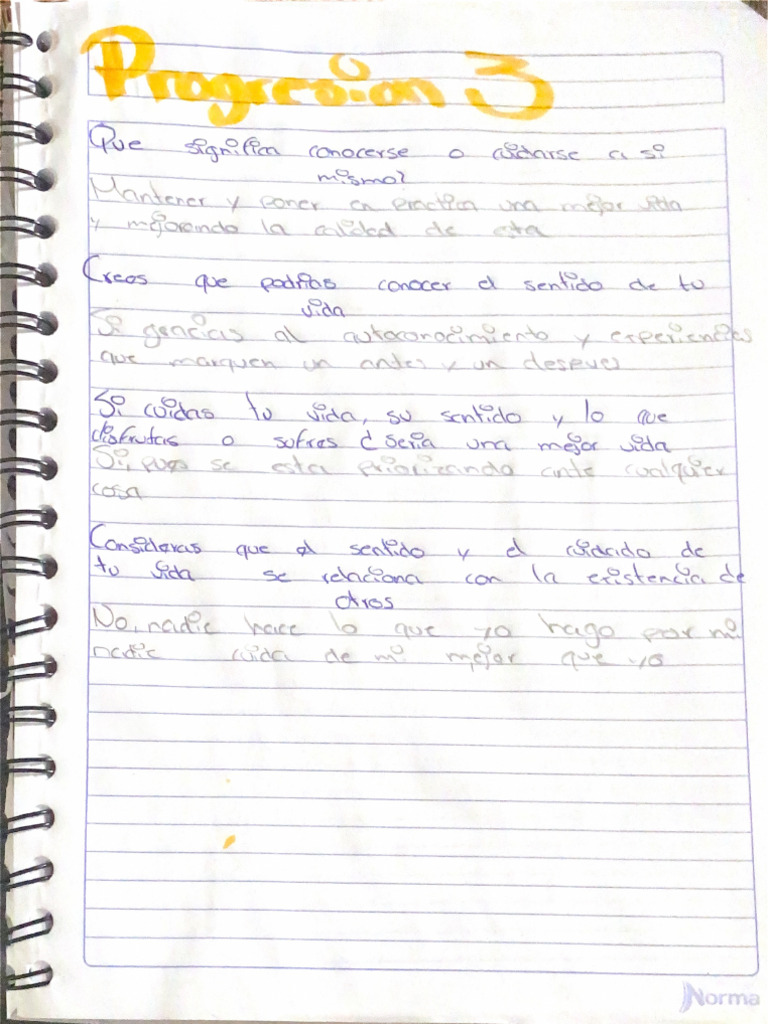 Progresion 3
Que significa conocerse o cuidarse a si
mismo?
Mantener y poner en practica una mejor vida
y mejorando la calidad de esta
Crees que podrias conocer el sentido de tu
vida
Si gracias al autoconocimiento y experiencias
que marquen un antes y un despues
Si cuidas tu vida, su sentido y lo que
disfrutas o sufres ¿ seria una mejor vida
Si, pues se esta priorizando ante cualquier
cosa
Consideras que el sentido y el cuidado de
tu vida se relaciona con la existencia de
otros
No, nadie hace lo que yo hago por mi
nadie cuida de mi mejor que yo
Norma